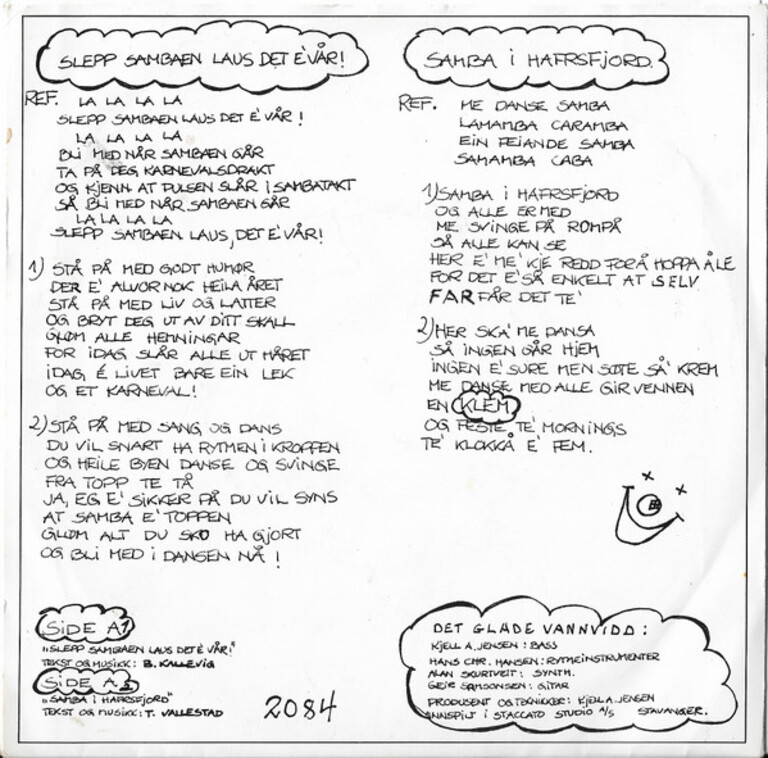 SLEPP SAMBAEN LAUS DET E'VÅR!
REF. LA LA LA LA
SLEPP SAMBAEN LAUS DET E' VÅR!
LA LA LA LA
BLI MED NÅR SAMBAEN GÅR
TA PÅ DEG KARNEVALSDRAKT
OG KJENN AT PULSEN SLÅR I SAMBATAKT
SÅ BLI MED NÅR SAMBAEN GÅR
LA LA LA LA
SLEPP SAMBAEN LAUS, DET E'VÅR!
1) STÅ PÅ MED GODT HUMØR
DER E' ALVOR NOK HEILA ÅRET
STÅ PÅ MED LIV OG LATTER
OG BRYT DEG UT AV DITT SKALL
GLØM ALLE HEMNINGAR
FOR IDAG SLÅR ALLE UT HÅRET
IDAG É LIVET BARE EIN LEK
OG ET KARNEVAL!
2) STÅ PÅ MED SANG OG DANS
DU VIL SNART HA RYTMEN I KROPPEN
OG HEILE BYEN DANSE OG SVINGE
FRA TOPP TE TÅ
JA, EG E' SIKKER PÅ DU VIL SYNS
AT SAMBA E' TOPPEN
GLØM ALT DU SKO HA GJORT
OG BLI MED I DANSEN NÅ!
SIDE A1
"SLEPP SAMBAEN LAUS DET E' VÅR!"
TEKST OG MUSIKK: B. KALLEVIG
SIDE A2
"SAMBA I HAFRSFJORD"
TEKST OG MUSIKK: T. VALLESTAD
2084
SAMBA I HAFRSFJORD.
REF. ME DANSE SAMBA
LAMAMBA CARAMBA
EIN FEIANDE SAMBA
SAMAMBA CABA
1) SAMBA I HAFRSFJORD
OG ALLE ER MED
ME SVINGE PÅ ROMPÅ
SÅ ALLE KAN SE
HER E' ME' KJE REDD FORÅ HOPPA ÅLE
FOR DET E' SÅ ENKELT AT SELV
FAR FÅR DET TE'
2) HER SKA' ME DANSA
SÅ INGEN GÅR HJEM
INGEN E' SURE MEN SØTE SÅ' KREM
ME DANSE MED ALLE GIR VENNEN
EN KLEM
OG FESTE TE' MORNINGS
TE' KLOKKÅ E' FEM.
DET GLADE VANNVIDD:
KJELL A. JENSEN: BASS
HANS CHR. HANSEN: RYTMEINSTRUMENTER
ALAN SKURTVEIT: SYNTH.
GEIR SAMSONSEN: GITAR
PRODUSENT OG TEKNIKKER: KJELL A. JENSEN
INNSPILT I STACCATO STUDIO A/S STAVANGER.